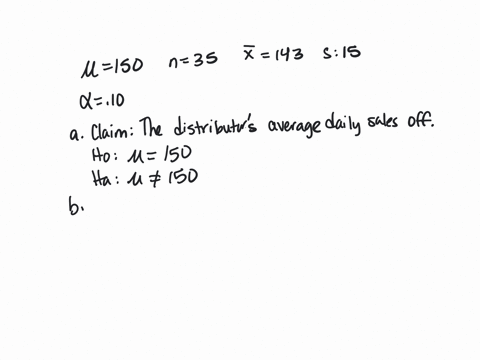 μ=150 n=35 x̄=143 s:15
α=.10
a. Claim: The distributor's average daily sales off.
Ho: μ=150
Ha: μ≠150
b.